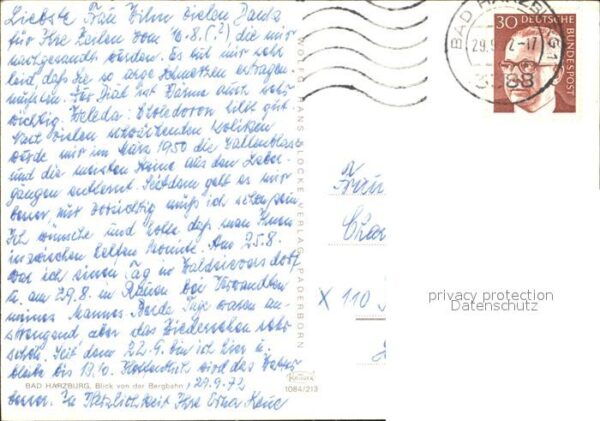 Liebste Frau Vilm vielen Dank
für Ihre Zeilen vom 16.8. (?) die mir
nachgesandt wurden. Es tut mir sehr
leid daß Sie so arge Schmerzen ertragen
mußten. Für Diät mit Wärme auch sehr
wichtig. Weleda: Choleodoron hilft gut.
Nach vielen schrecklichen Koliken
wurde mir im März 1950 die Gallenblase
und die meisten Steine aus den Leber-
gängen entfernt. Seitdem geht es mir
besser, nur vorsichtig muß ich schon sein
Ich wünsche und hoffe daß man Ihnen
inzwischen helfen konnte. Am 25.8.
war ich einen Tag in Waldsieversdorf
u. am 29.8. in Rauen bei Verwandten
meines Mannes. Beide Tage waren an-
strengend aber das Wiedersehen sehr
schön. Seit dem 22.9. bin ich hier u.
bleibe bis 13.10. Hoffentlich wird das Wetter
BAD HARZBURG, Blick von der Bergbahn
29.9.72
besser. In Herzlichkeit Ihre Erna
WOLFGANG HANS KLOCKE VERLAG PADERBORN
Krüger
1084/213
BAD HARZBURG 1
29.9.72-17
3388
30 DEUTSCHE
BUNDESPOST
X 110
privacy protection
Datenschutz